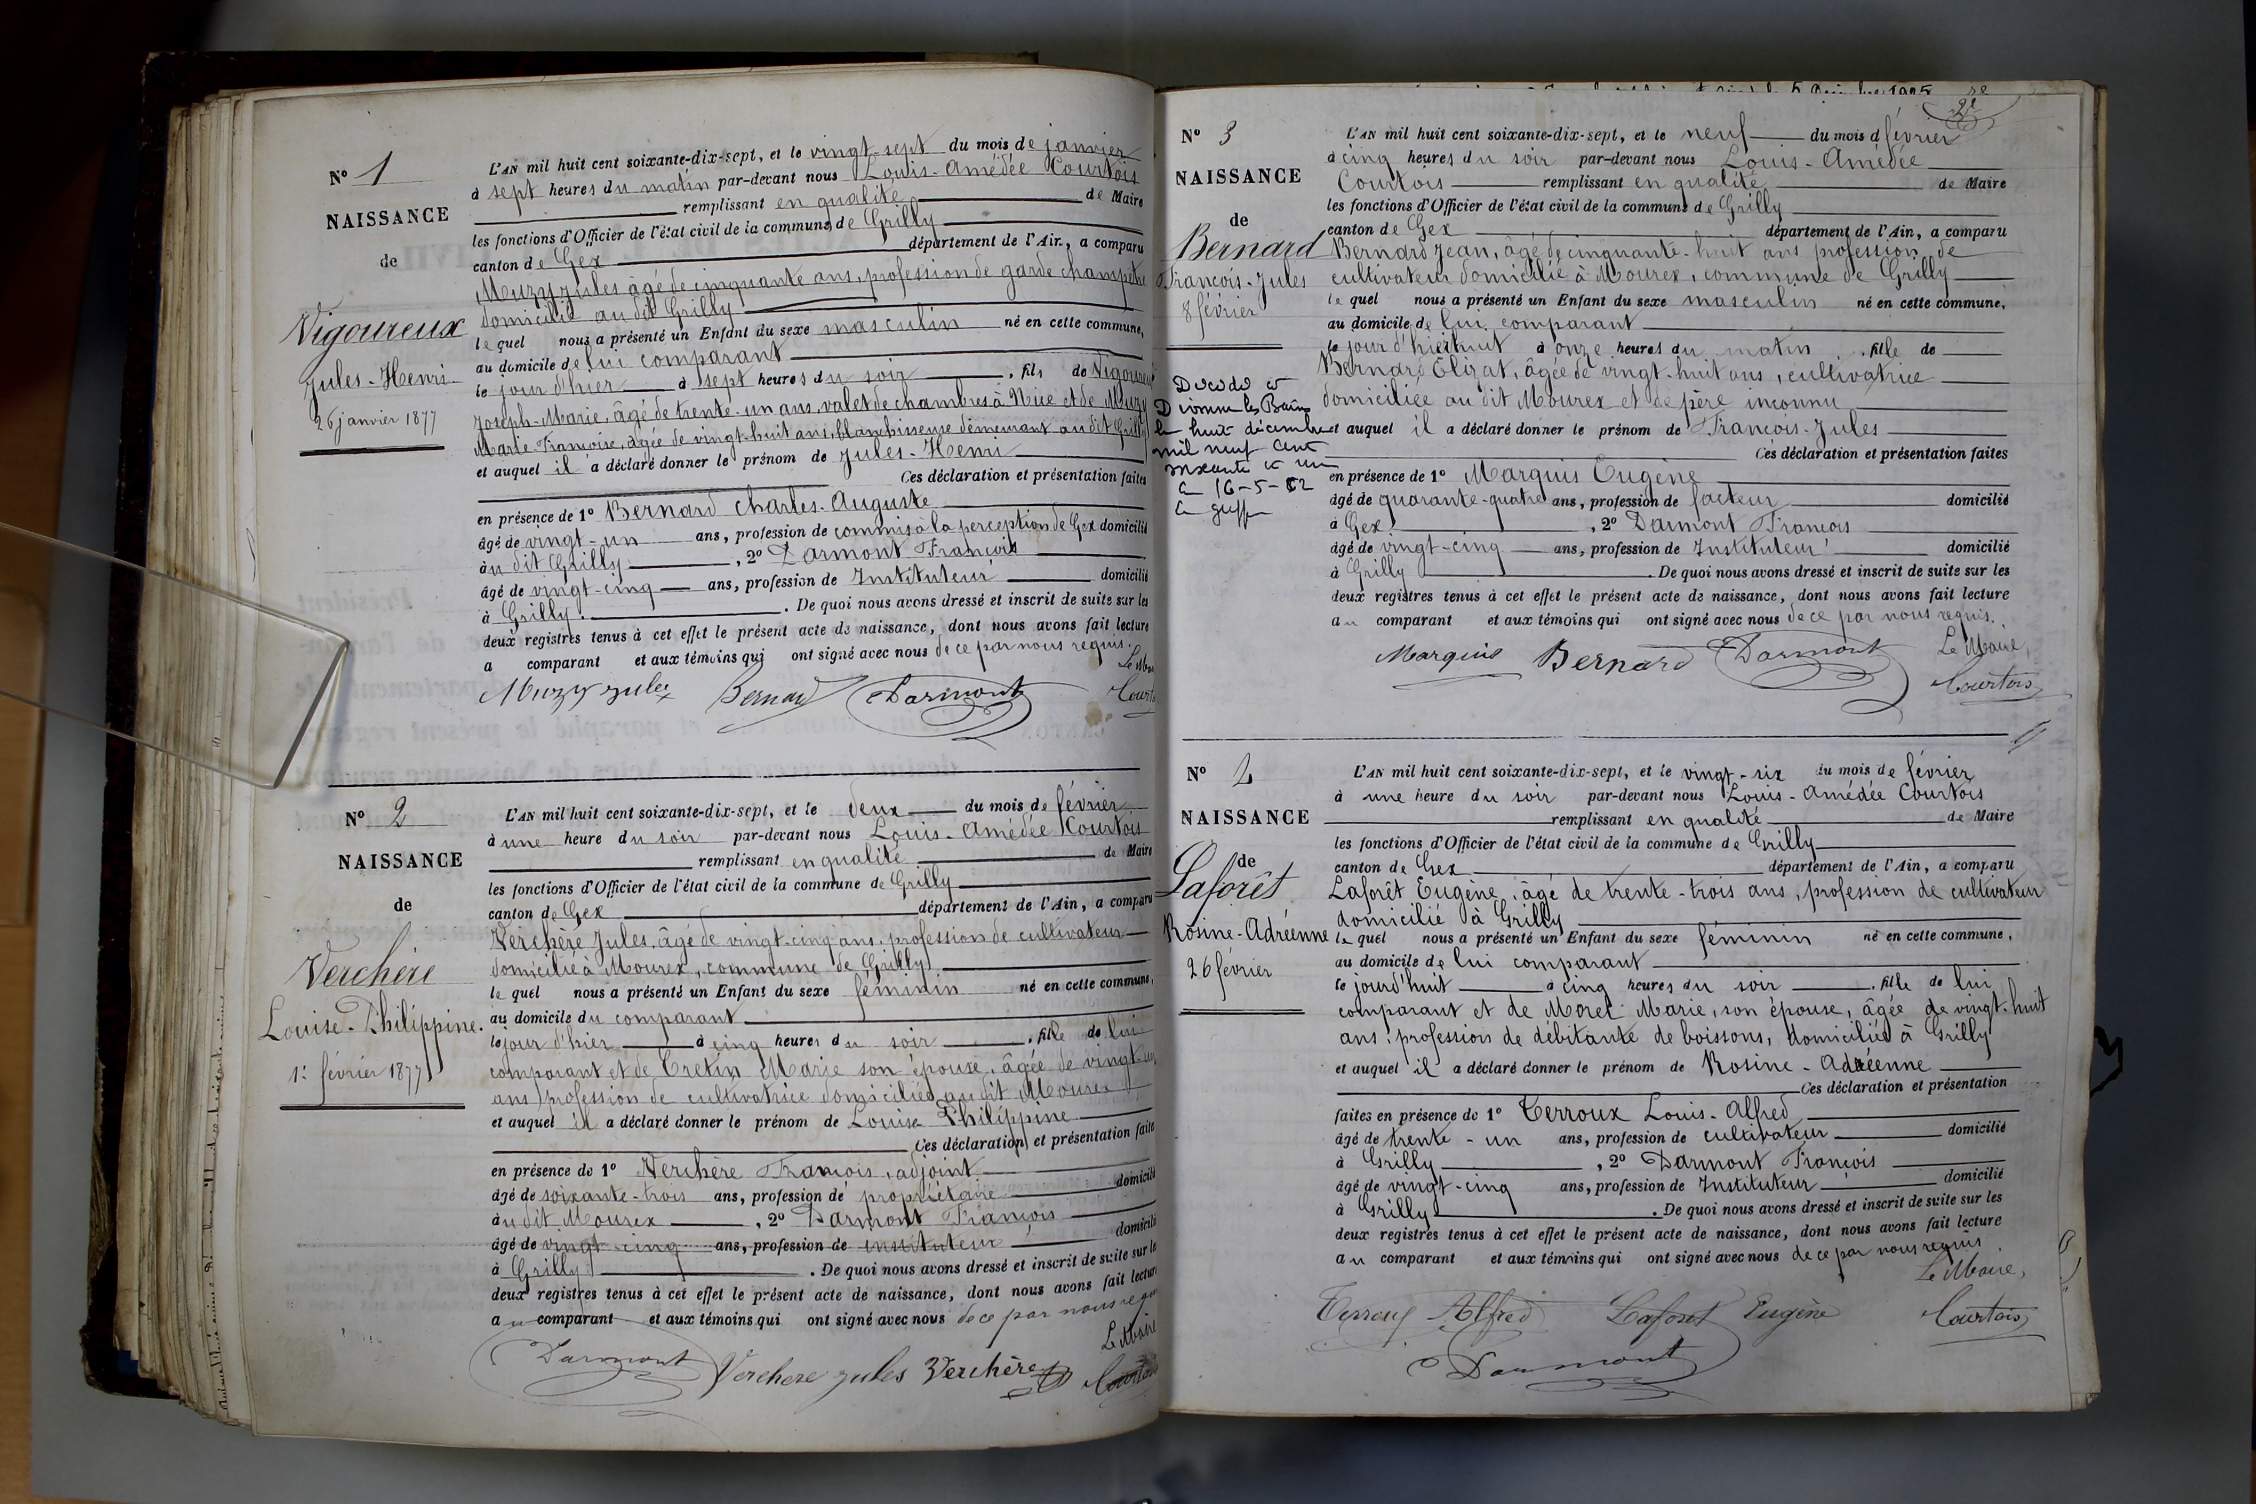 N° 1
NAISSANCE
de
Vigoureux
Jules-Henri
26 janvier 1877
L'AN mil huit cent soixante-dix-sept, et le vingt-sept du mois de janvier
à sept heures du matin par-devant nous Louis-Amédée Courtois
remplissant en qualité de Maire
les fonctions d'Officier de l'état civil de la commune de Grilly
canton de Gex département de l'Ain, a comparu
Muzy Jules âgé de cinquante ans, profession de garde champêtre
domicilié au dit Grilly
le quel nous a présenté un Enfant du sexe masculin né en cette commune,
au domicile de lui comparant
le jour d'hier à sept heures du soir, fils de Vigoureux
Joseph-Marie, âgé de trente-un ans, valet de chambres à Nice et de Muzy
Marie Françoise, âgée de vingt-huit ans, blanchisseuse demeurant au dit Grilly
et auquel il a déclaré donner le prénom de Jules-Henri
Ces déclaration et présentation faites
en présence de 1° Bernard Charles-Auguste
âgé de vingt-un ans, profession de commis à la perception de Gex domicilié
au dit Grilly, 2° Darmont François
âgé de vingt-cinq ans, profession de Instituteur domicilié
à Grilly. De quoi nous avons dressé et inscrit de suite sur les
deux registres tenus à cet effet le présent acte de naissance, dont nous avons fait lecture
a comparant et aux témoins qui ont signé avec nous de ce par nous requis.
Le Maire
Muzy Jules Bernard Darmont Courtois
N° 2
NAISSANCE
de
Verchère
Louise-Philippine.
1er février 1877
L'AN mil huit cent soixante-dix-sept, et le deux du mois de février
à une heure du soir par-devant nous Louis-Amédée Courtois
remplissant en qualité de Maire
les fonctions d'Officier de l'état civil de la commune de Grilly
canton de Gex département de l'Ain, a comparu
Verchère Jules, âgé de vingt-cinq ans, profession de cultivateur
domicilié à Mourex, commune de Grilly
le quel nous a présenté un Enfant du sexe féminin né en cette commune,
au domicile du comparant
le jour d'hier à cinq heures du soir, fille de lui
comparant et de Cretin Marie son épouse, âgée de vingt-un
ans profession de cultivatrice domiciliée au dit Mourex
et auquel il a déclaré donner le prénom de Louise Philippine
Ces déclaration et présentation faites
en présence de 1° Verchère François, adjoint
âgé de soixante-trois ans, profession de propriétaire domicilié
au dit Mourex, 2° Darmont François
âgé de vingt-cinq ans, profession de instituteur domicilié
à Grilly. De quoi nous avons dressé et inscrit de suite sur les
deux registres tenus à cet effet le présent acte de naissance, dont nous avons fait lecture
au comparant et aux témoins qui ont signé avec nous de ce par nous requis
Le Maire
Darmont Verchere Jules Verchère Courtois
N° 3
NAISSANCE
de
Bernard
François-Jules
8 février
Décédé à
Divonne les Bains
le huit décembre
mil neuf cent
soixante et un
Le 16-5-62
Le greffier
L'AN mil huit cent soixante-dix-sept, et le neuf du mois d février
à cinq heures du soir par-devant nous Louis-Amédée
Courtois remplissant en qualité de Maire
les fonctions d'Officier de l'état civil de la commune de Grilly
canton de Gex département de l'Ain, a comparu
Bernard Jean, âgé de cinquante-huit ans profession de
cultivateur domicilié à Mourex, commune de Grilly
le quel nous a présenté un Enfant du sexe masculin né en cette commune,
au domicile de lui comparant
le jour d'hier à onze heures du matin, fille de
Bernard Elizat, âgée de vingt-huit ans, cultivatrice
domiciliée au dit Mourex et de père inconnu
et auquel il a déclaré donner le prénom de François-Jules
Ces déclaration et présentation faites
en présence de 1° Marquis Eugène
âgé de quarante-quatre ans, profession de facteur domicilié
à Gex, 2° Darmont François
âgé de vingt-cinq ans, profession de Instituteur domicilié
à Grilly. De quoi nous avons dressé et inscrit de suite sur les
deux registres tenus à cet effet le présent acte de naissance, dont nous avons fait lecture
au comparant et aux témoins qui ont signé avec nous de ce par nous requis.
Le Maire,
Marquis Bernard Darmont Courtois
N° 4
NAISSANCE
de
Laforêt
Rosine-Adréenne
26 février
L'AN mil huit cent soixante-dix-sept, et le vingt-six du mois de février
à une heure du soir par-devant nous Louis-Amédée Courtois
remplissant en qualité de Maire
les fonctions d'Officier de l'état civil de la commune de Grilly
canton de Gex département de l'Ain, a comparu
Laforêt Eugène, âgé de trente-trois ans, profession de cultivateur
domicilié à Grilly
le quel nous a présenté un Enfant du sexe féminin né en cette commune,
au domicile de lui comparant
le jourd'huit à cinq heures du soir, fille de lui
comparant et de Moret Marie, son épouse, âgée de vingt-huit
ans, profession de débitante de boissons, domiciliée à Grilly
et auquel il a déclaré donner le prénom de Rosine-Adréenne
Ces déclaration et présentation
faites en présence de 1° Terroux Louis-Alfred
âgé de trente-un ans, profession de cultivateur domicilié
à Grilly, 2° Darmont François
âgé de vingt-cinq ans, profession de Instituteur domicilié
à Grilly. De quoi nous avons dressé et inscrit de suite sur les
deux registres tenus à cet effet le présent acte de naissance, dont nous avons fait lecture
au comparant et aux témoins qui ont signé avec nous de ce par nous requis
Le Maire,
Terroux Alfred Laforet Eugène Courtois
Darmont